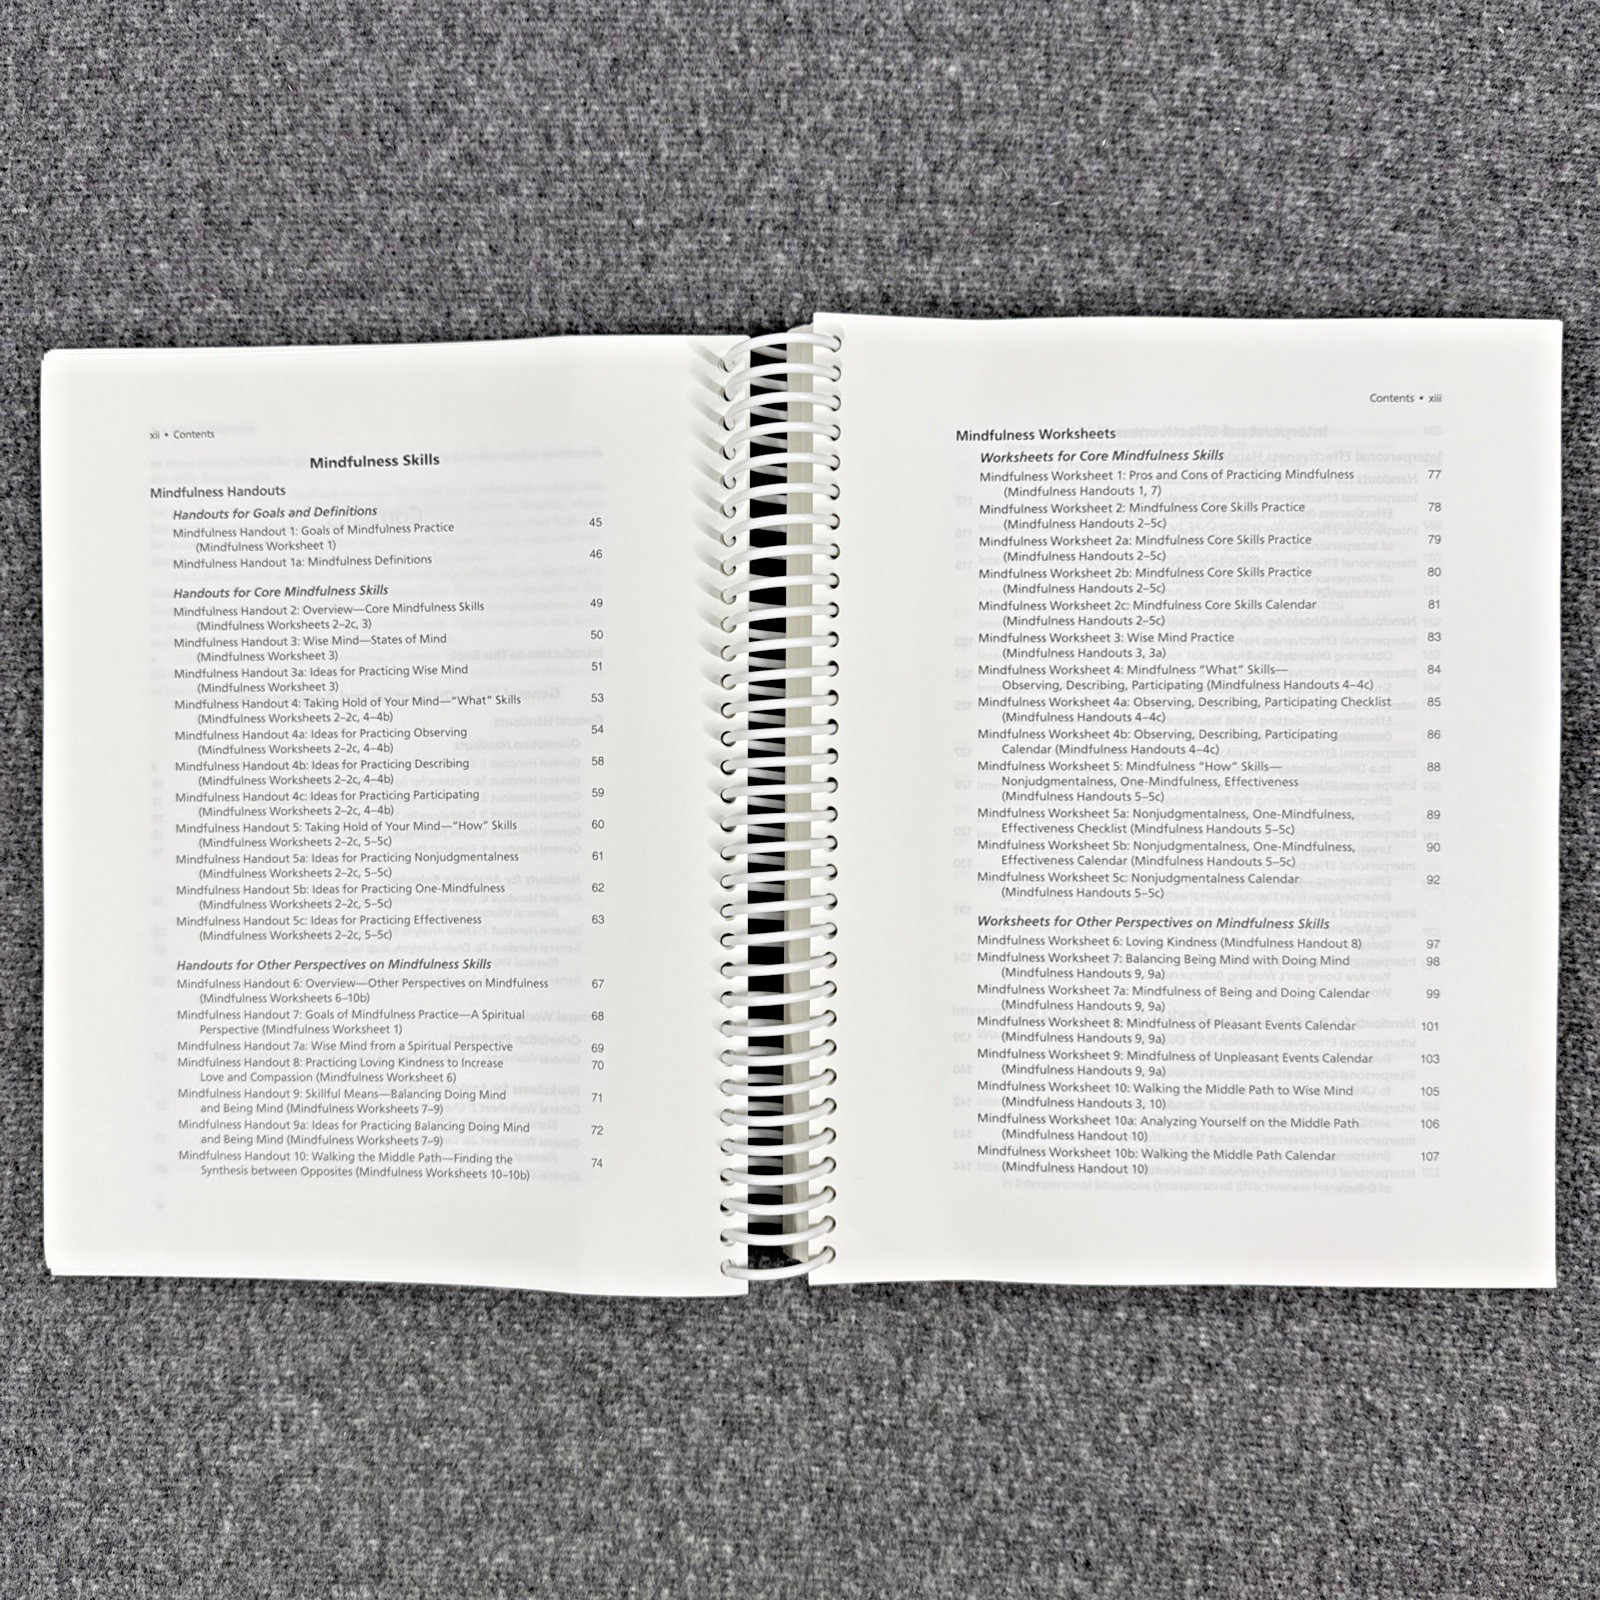 xii • Contents
Mindfulness Skills
Mindfulness Handouts
Handouts for Goals and Definitions
Mindfulness Handout 1: Goals of Mindfulness Practice 45
(Mindfulness Worksheet 1)
Mindfulness Handout 1a: Mindfulness Definitions 46
Handouts for Core Mindfulness Skills
Mindfulness Handout 2: Overview—Core Mindfulness Skills 49
(Mindfulness Worksheets 2–2c, 3)
Mindfulness Handout 3: Wise Mind—States of Mind 50
(Mindfulness Worksheet 3)
Mindfulness Handout 3a: Ideas for Practicing Wise Mind 51
(Mindfulness Worksheet 3)
Mindfulness Handout 4: Taking Hold of Your Mind—“What” Skills 53
(Mindfulness Worksheets 2–2c, 4–4b)
Mindfulness Handout 4a: Ideas for Practicing Observing 54
(Mindfulness Worksheets 2–2c, 4–4b)
Mindfulness Handout 4b: Ideas for Practicing Describing 58
(Mindfulness Worksheets 2–2c, 4–4b)
Mindfulness Handout 4c: Ideas for Practicing Participating 59
(Mindfulness Worksheets 2–2c, 4–4b)
Mindfulness Handout 5: Taking Hold of Your Mind—“How” Skills 60
(Mindfulness Worksheets 2–2c, 5–5c)
Mindfulness Handout 5a: Ideas for Practicing Nonjudgmentalness 61
(Mindfulness Worksheets 2–2c, 5–5c)
Mindfulness Handout 5b: Ideas for Practicing One-Mindfulness 62
(Mindfulness Worksheets 2–2c, 5–5c)
Mindfulness Handout 5c: Ideas for Practicing Effectiveness 63
(Mindfulness Worksheets 2–2c, 5–5c)
Handouts for Other Perspectives on Mindfulness Skills
Mindfulness Handout 6: Overview—Other Perspectives on Mindfulness 67
(Mindfulness Worksheets 6–10b)
Mindfulness Handout 7: Goals of Mindfulness Practice—A Spiritual 68
Perspective (Mindfulness Worksheet 1)
Mindfulness Handout 7a: Wise Mind from a Spiritual Perspective 69
Mindfulness Handout 8: Practicing Loving Kindness to Increase 70
Love and Compassion (Mindfulness Worksheet 6)
Mindfulness Handout 9: Skillful Means—Balancing Doing Mind 71
and Being Mind (Mindfulness Worksheets 7–9)
Mindfulness Handout 9a: Ideas for Practicing Balancing Doing Mind 72
and Being Mind (Mindfulness Worksheets 7–9)
Mindfulness Handout 10: Walking the Middle Path—Finding the 74
Synthesis between Opposites (Mindfulness Worksheets 10–10b)
Contents • xiii
Mindfulness Worksheets
Worksheets for Core Mindfulness Skills
Mindfulness Worksheet 1: Pros and Cons of Practicing Mindfulness 77
(Mindfulness Handouts 1, 7)
Mindfulness Worksheet 2: Mindfulness Core Skills Practice 78
(Mindfulness Handouts 2–5c)
Mindfulness Worksheet 2a: Mindfulness Core Skills Practice 79
(Mindfulness Handouts 2–5c)
Mindfulness Worksheet 2b: Mindfulness Core Skills Practice 80
(Mindfulness Handouts 2–5c)
Mindfulness Worksheet 2c: Mindfulness Core Skills Calendar 81
(Mindfulness Handouts 2–5c)
Mindfulness Worksheet 3: Wise Mind Practice 83
(Mindfulness Handouts 3, 3a)
Mindfulness Worksheet 4: Mindfulness “What” Skills— 84
Observing, Describing, Participating (Mindfulness Handouts 4–4c)
Mindfulness Worksheet 4a: Observing, Describing, Participating Checklist 85
(Mindfulness Handouts 4–4c)
Mindfulness Worksheet 4b: Observing, Describing, Participating 86
Calendar (Mindfulness Handouts 4–4c)
Mindfulness Worksheet 5: Mindfulness “How” Skills— 88
Nonjudgmentalness, One-Mindfulness, Effectiveness
(Mindfulness Handouts 5–5c)
Mindfulness Worksheet 5a: Nonjudgmentalness, One-Mindfulness, 89
Effectiveness Checklist (Mindfulness Handouts 5–5c)
Mindfulness Worksheet 5b: Nonjudgmentalness, One-Mindfulness, 90
Effectiveness Calendar (Mindfulness Handouts 5–5c)
Mindfulness Worksheet 5c: Nonjudgmentalness Calendar 92
(Mindfulness Handouts 5–5c)
Worksheets for Other Perspectives on Mindfulness Skills
Mindfulness Worksheet 6: Loving Kindness (Mindfulness Handout 8) 97
Mindfulness Worksheet 7: Balancing Being Mind with Doing Mind 98
(Mindfulness Handouts 9, 9a)
Mindfulness Worksheet 7a: Mindfulness of Being and Doing Calendar 99
(Mindfulness Handouts 9, 9a)
Mindfulness Worksheet 8: Mindfulness of Pleasant Events Calendar 101
(Mindfulness Handouts 9, 9a)
Mindfulness Worksheet 9: Mindfulness of Unpleasant Events Calendar 103
(Mindfulness Handouts 9, 9a)
Mindfulness Worksheet 10: Walking the Middle Path to Wise Mind 105
(Mindfulness Handouts 3, 10)
Mindfulness Worksheet 10a: Analyzing Yourself on the Middle Path 106
(Mindfulness Handout 10)
Mindfulness Worksheet 10b: Walking the Middle Path Calendar 107
(Mindfulness Handout 10)